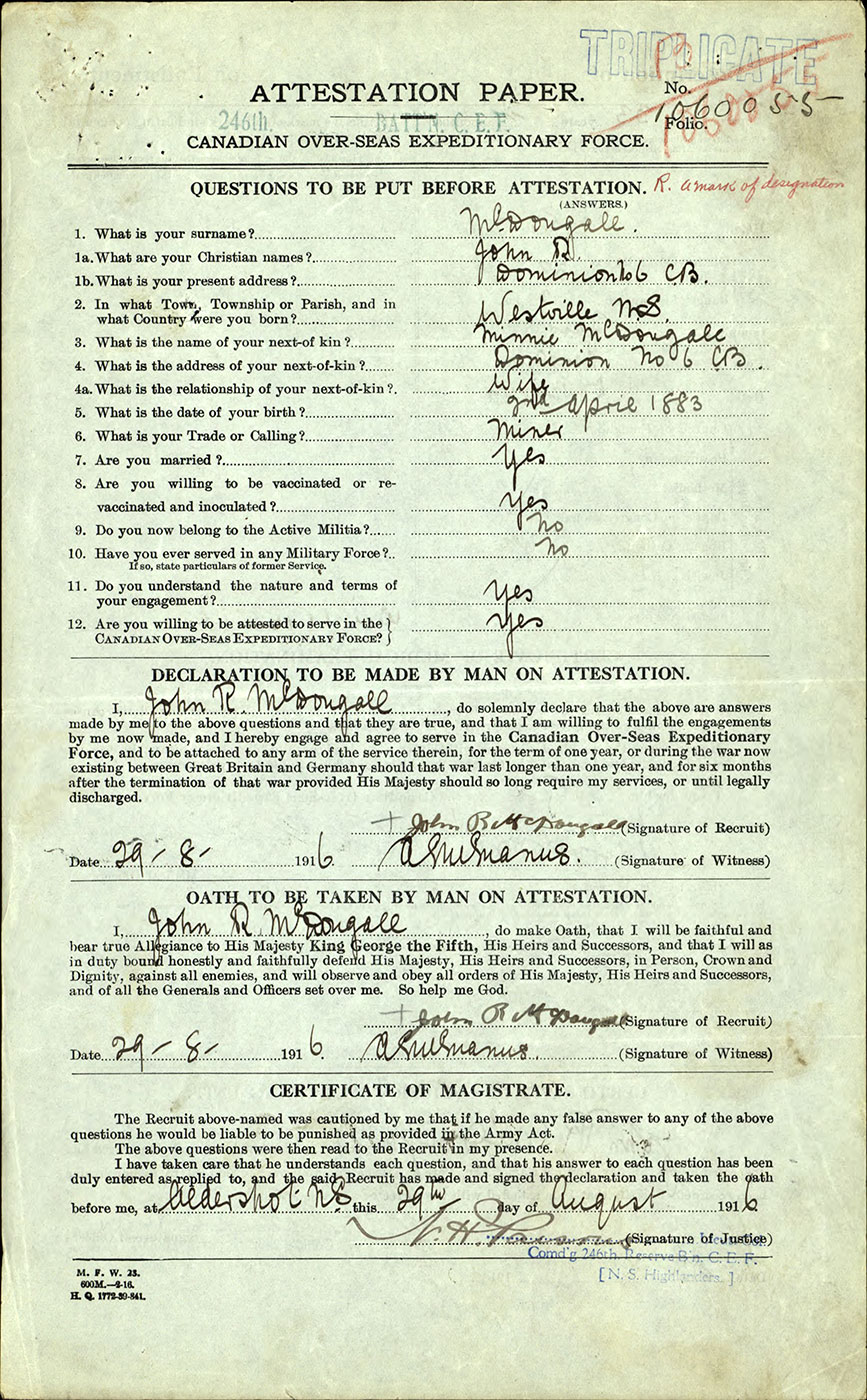 TRIPLICATE
ATTESTATION PAPER.
No. 1060055
Folio.
246th. BATT'N. C.E.F.
CANADIAN OVER-SEAS EXPEDITIONARY FORCE.
QUESTIONS TO BE PUT BEFORE ATTESTATION. R. a mark of designation
(ANSWERS.)
1. What is your surname? McDougall.
1a. What are your Christian names? John R.
1b. What is your present address? Dominion No 6 C.B.
2. In what Town, Township or Parish, and in
what Country were you born? Westville N.S.
3. What is the name of your next-of kin? Minnie McDougall
4. What is the address of your next-of-kin? Dominion No 6 CB.
4a. What is the relationship of your next-of-kin? Wife
5. What is the date of your birth? 2nd April 1883
6. What is your Trade or Calling? Miner
7. Are you married? Yes
8. Are you willing to be vaccinated or re-
vaccinated and inoculated? Yes
9. Do you now belong to the Active Militia? No
10. Have you ever served in any Military Force? No
If so, state particulars of former Service.
11. Do you understand the nature and terms of
your engagement? Yes
12. Are you willing to be attested to serve in the
CANADIAN OVER-SEAS EXPEDITIONARY FORCE? Yes
DECLARATION TO BE MADE BY MAN ON ATTESTATION.
I, John R. McDougall, do solemnly declare that the above are answers
made by me to the above questions and that they are true, and that I am willing to fulfil the engagements
by me now made, and I hereby engage and agree to serve in the Canadian Over-Seas Expeditionary
Force, and to be attached to any arm of the service therein, for the term of one year, or during the war now
existing between Great Britain and Germany should that war last longer than one year, and for six months
after the termination of that war provided His Majesty should so long require my services, or until legally
discharged.
+ John R McDougall (Signature of Recruit)
Date 29-8- 1916. (Signature of Witness)
OATH TO BE TAKEN BY MAN ON ATTESTATION.
I, John R. McDougall, do make Oath, that I will be faithful and
bear true Allegiance to His Majesty King George the Fifth, His Heirs and Successors, and that I will as
in duty bound honestly and faithfully defend His Majesty, His Heirs and Successors, in Person, Crown and
Dignity, against all enemies, and will observe and obey all orders of His Majesty, His Heirs and Successors,
and of all the Generals and Officers set over me. So help me God.
+ John R McDougall (Signature of Recruit)
Date 29-8- 1916. (Signature of Witness)
CERTIFICATE OF MAGISTRATE.
The Recruit above-named was cautioned by me that if he made any false answer to any of the above
questions he would be liable to be punished as provided in the Army Act.
The above questions were then read to the Recruit in my presence.
I have taken care that he understands each question, and that his answer to each question has been
duly entered as replied to, and the said Recruit has made and signed the declaration and taken the oath
before me, at Aldershot N.S. this 29th day of August 1916
(Signature of Justice)
Comd'g 246th. Reserve B'n. C.E.F.
[N. S. Highlanders.]
M. F. W. 23.
600M.—2-16.
H. Q. 1772-39-841.